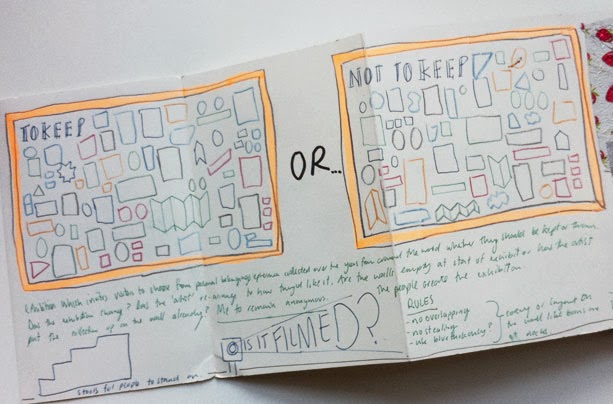 TO KEEP
OR...
NOT TO KEEP
Exhibition which invites visitors to choose from personal belongings/ephemera collected over the years from around the world whether they should be kept or thrown.
Does the exhibition change? Does the 'artist' re-arrange to how they'd like it. Are the walls empty at start of exhibit or has the artist
put the collection up on the wall already? Me to remain anonymous. The people create the exhibition.
IS IT FILMED?
stairs for people to stand on.
RULES
- no overlapping
- no stealing
- use blue tack only?
on the wall